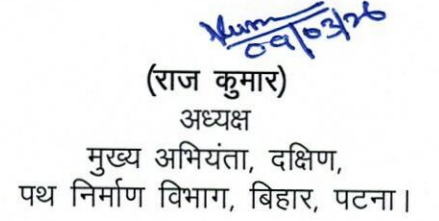 09/03/26
(राज कुमार)
अध्यक्ष
मुख्य अभियंता, दक्षिण,
पथ निर्माण विभाग, बिहार, पटना।